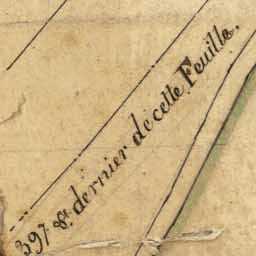 397 & dernier de cette Feuille.